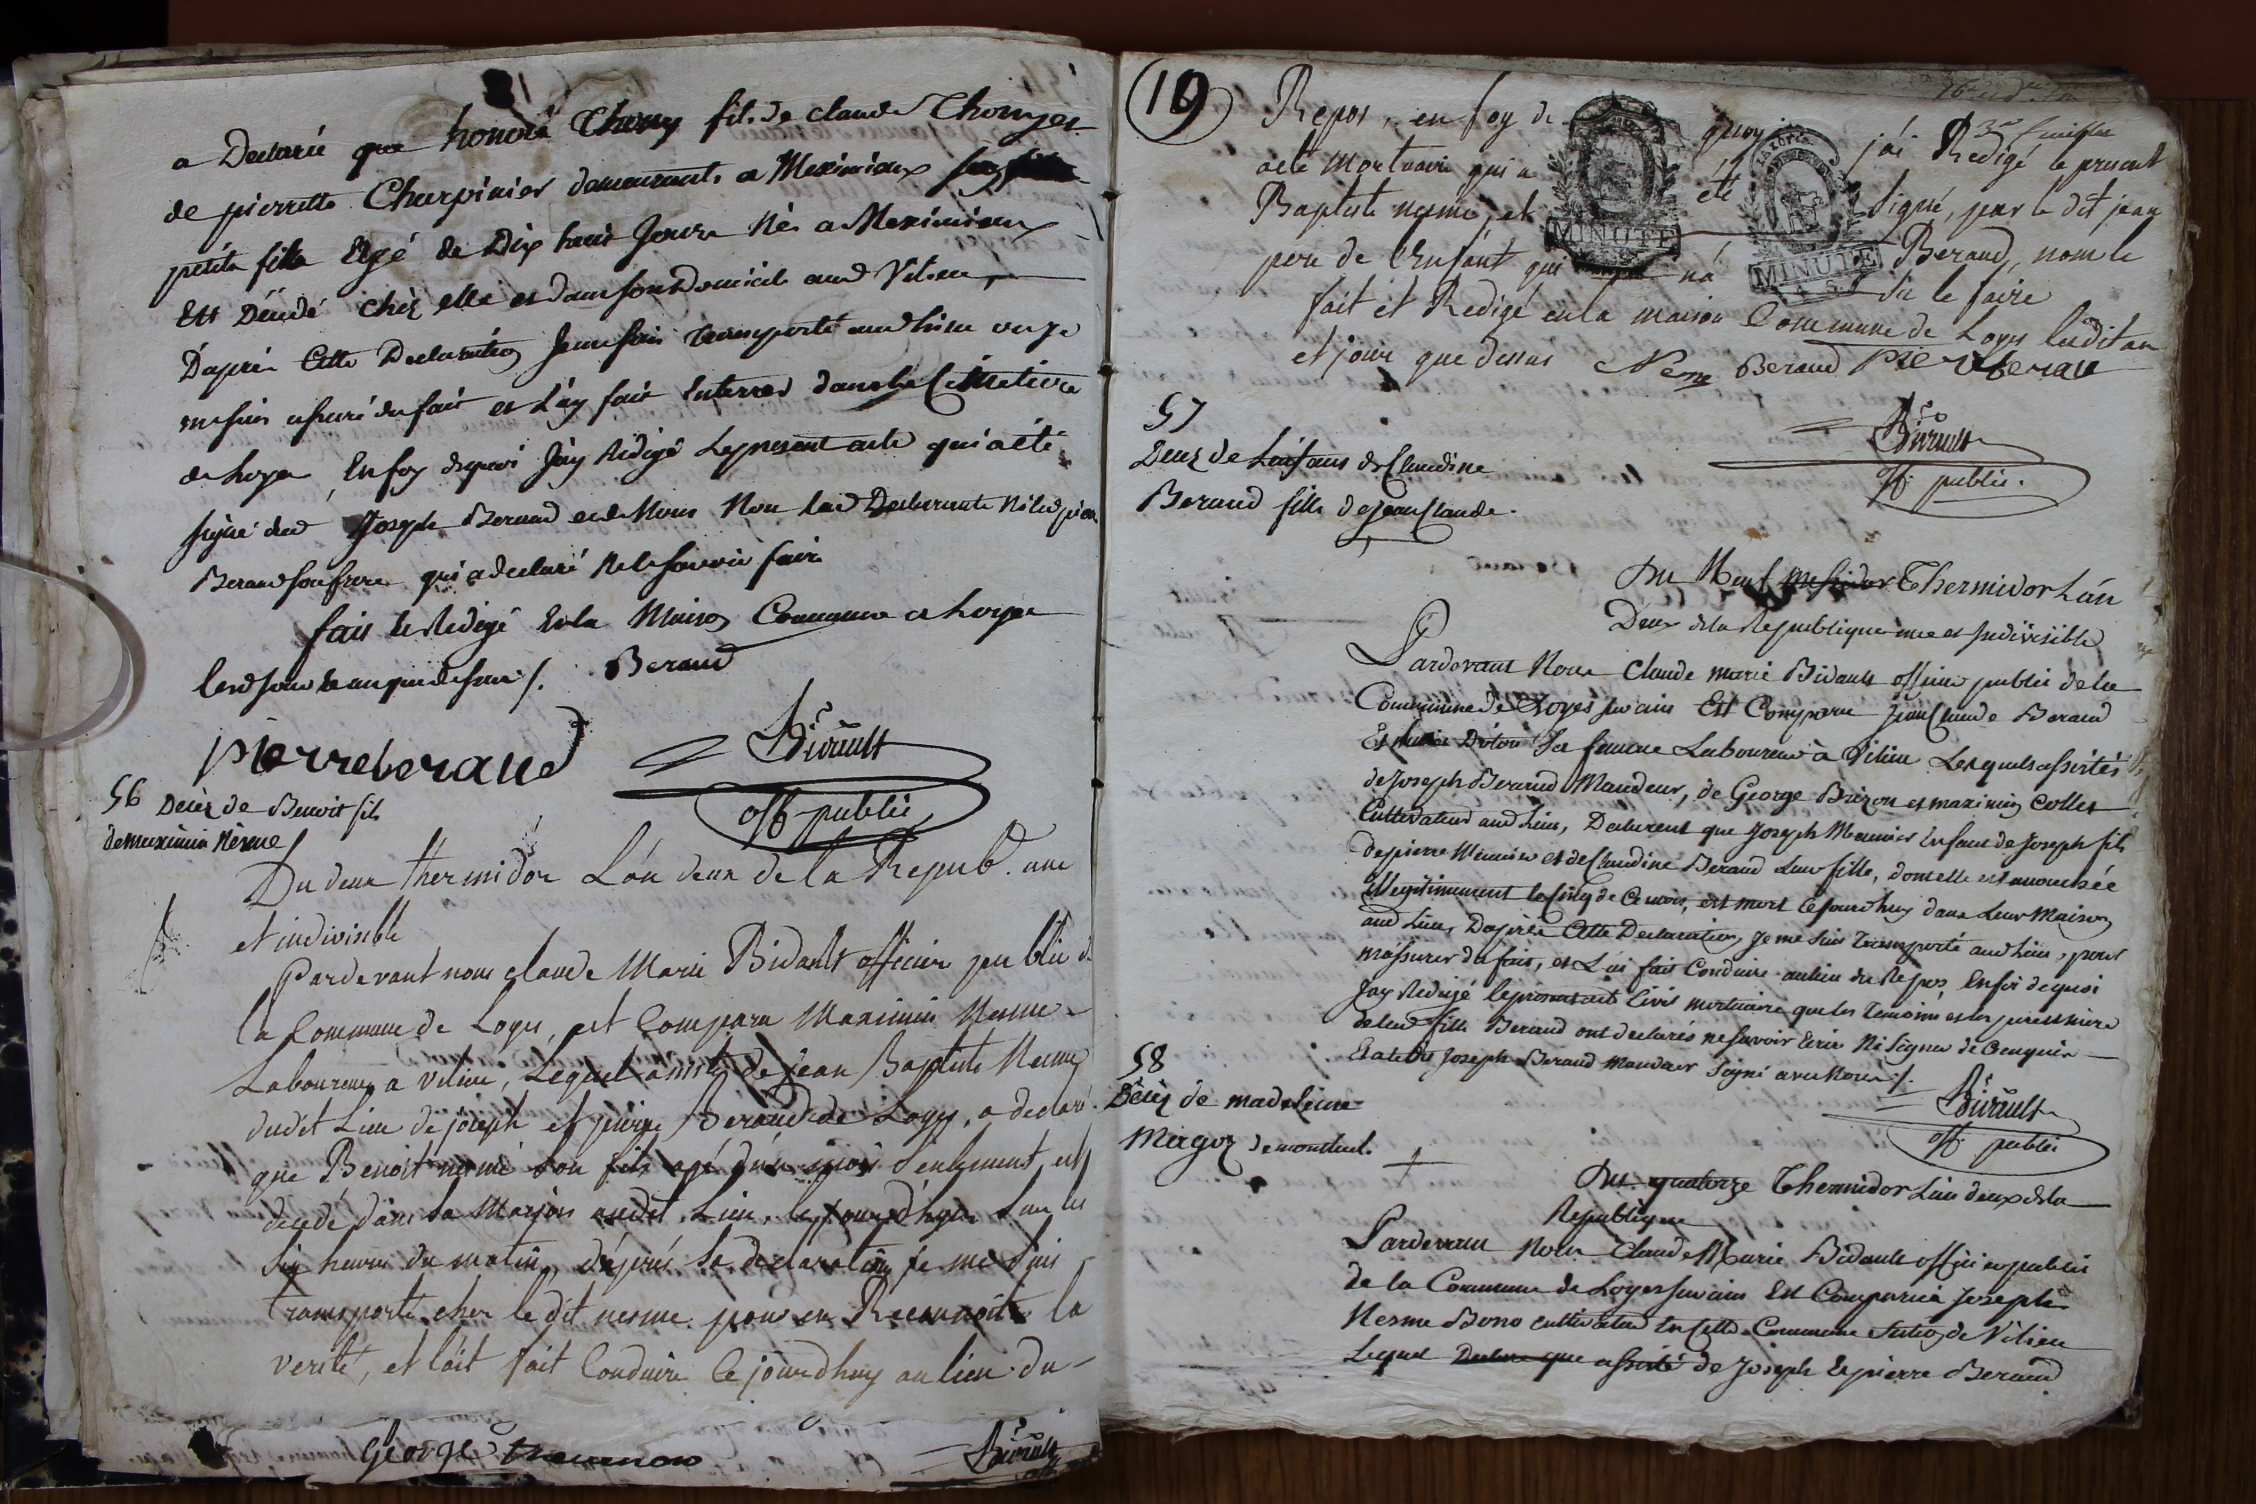 a Declaré que honoré Thomy fils de claude Thomy et
de pierrette Charpinier demeurants a Meximieux
petite fille Agé de Dix huit Jours Né a Meximieux
Est Décédé chéz elle et dans son Domicile aud Vilieu,
D'après Cette Declaration Je me suis transporté aud lieu ou je
me suis assuré du fait et L'ay fait Enterrer dans le Cimetiere
de Loyes, En foy dequoi J'ay Rédigé Le present acte qui a été
signé dud Joseph Beraud et de Nous Non lad Declarante Ni led pierre
Beraud son frere qui a declaré Ne le savoir faire
fait et Rédigé En la Maison Commune a Loyes
Les Jour et an que dessus /. Beraud
pierre beraud
Bidault
off public
56 Décèz de Benoit fils
de maximin Nésme
Du deux thermidor L'án deux de la Repub. une
et indivisible
Pardevant nous claude Marie Bidault officier public de
la Commune de Loyes, est Comparu Maximin Nesme
Laboureur a vilieu, Lequel assisté de jean Baptiste Nesme
dudit Lieu de joseph et pierre Beraud de Loyes, a declaré
que Benoit nesmé son fils agé d'un mois seulement est
decedé dans sa Maison audit Lieu, le jourd'huy sur les
six heures du matin, d'après sa declaration je me suis
transporté chez le dit nesme pour en Reconnoitre la
verité, et l'ait fait Conduire Ce jourdhuy au lieu du
George
Bidault
19
Repos, en foy de quoy j'ái Redigé le present
acte mortuaire qui a été signé, par le dit jean
Baptiste nesme, et Beraud, nom le
pere de l'Enfant qui ná su le faire
fait et Redigé en la maison Commune de Loyes lesdit an
et jour que dessus Nesme Beraud Pierre beraud
MINUTE
MINUTE
Bidault
off. public.
57
Décez de L'enfant de Claudine
Beraud fille de Jean Claude.
Du Neuf messidor Thermidor L'án
Deux de la Republique une et Indivisible
Pardevant Nous Claude marie Bidault officier public de la
Commune de Loyes Est Comparu Jean Claude Beraud
Et sa femme Laboureur à Vilieu Lesquels assistés
de Joseph Beraud Mandeur, de George Brizon et maximin Collet
Cultivateurs aud Lieu, Declarent que Joseph Meunier Enfant de Joseph fils
de pierre Meunier et de Claudine Beraud Leur fille, dont elle est accouchée
Illegitimement le Cinq de Ce mois, est mort Cejourdhuy dans Leur Maison
aud Lieu, D'après Cette Declaration, Je me suis Transporté aud Lieu, pour
m'assurer du fait, et L'ai fait Conduire au lieu du Repos En foi de quoi
J'ay Redigé le present Civil mortuaire que les Temoins et les pere et mere
de lad fille Beraud ont declarés ne savoir Ecrire Ni Signer de Ce enquis
Et a le dit Joseph Beraud Mandeur Signé avec Nous /.
Bidault
off public
58
Décèz de madeleine
Mergoz de montluel.
Du quatorze Thermidor L'an deux de la
Republique
Pardevant Nous Claude Marie Bidault officier public
de la Commune de Loyes Est Comparu Joseph
Nesme Bono cultivateur En Cette Commune section de Vilieu
Lequel Declare que assisté de Joseph Et pierre Beraud